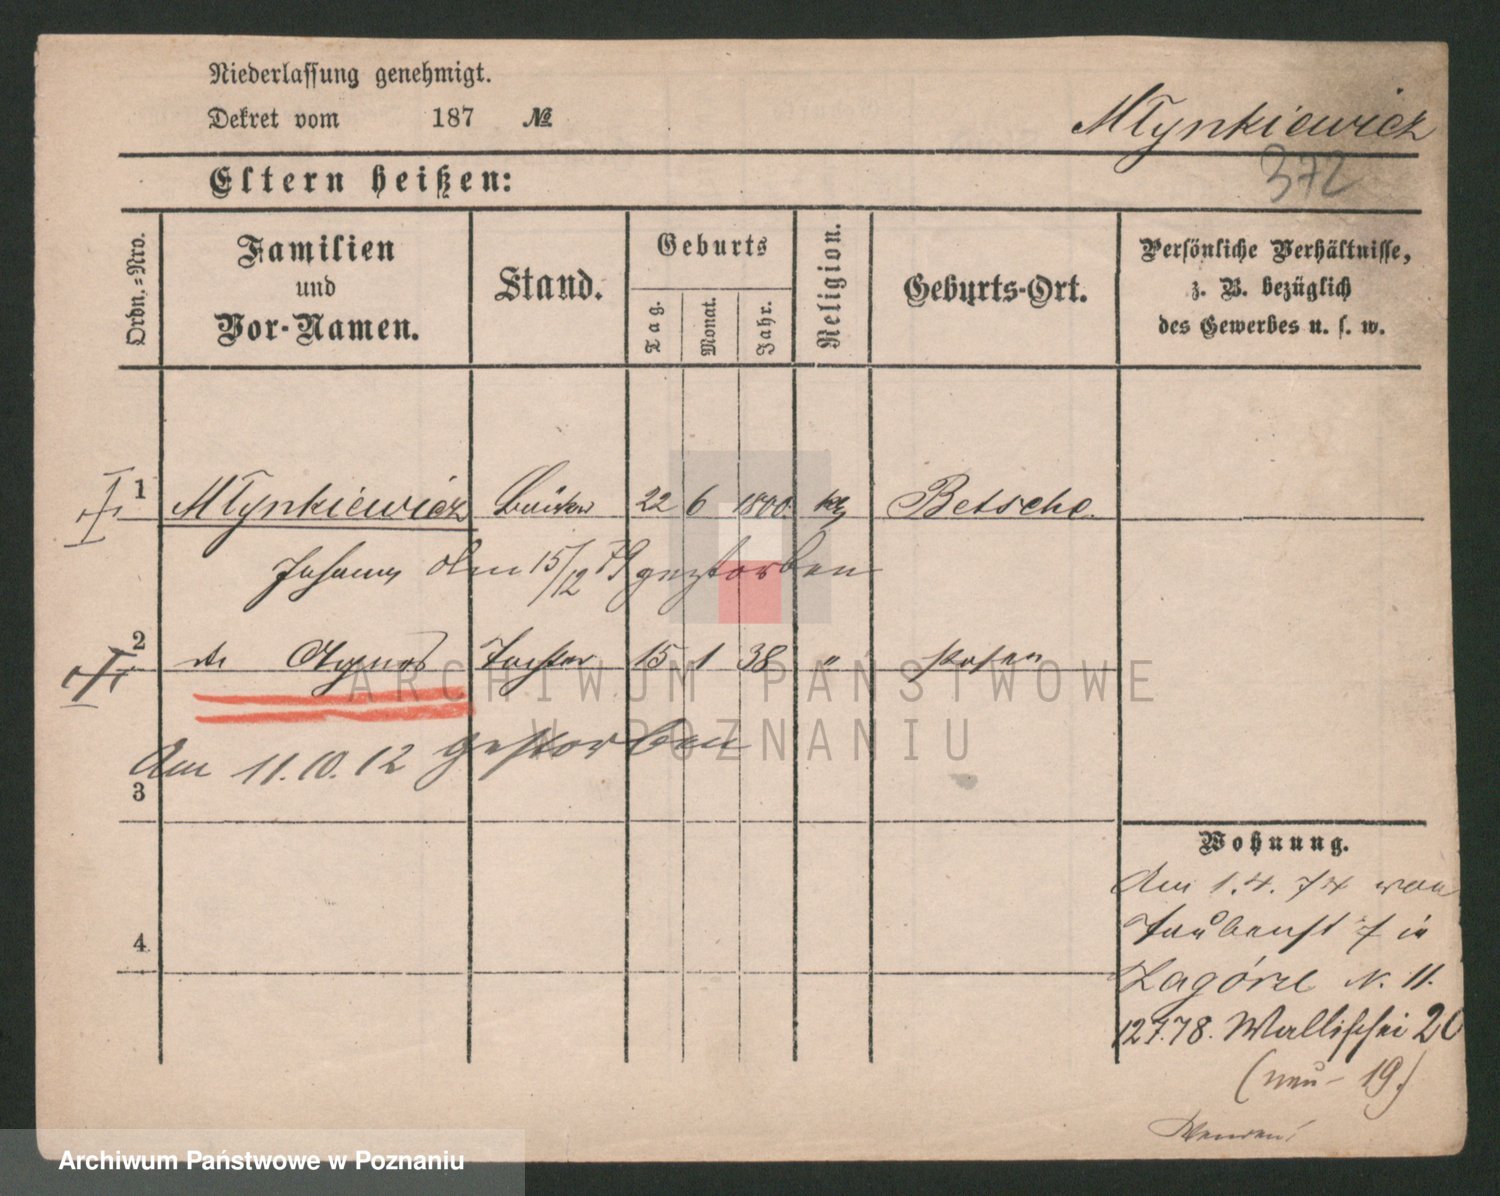 Niederlassung genehmigt.
Dekret vom 187 №
Młynkiewicz
372
Eltern heißen:
Ordn.-Nro.
Familien
und
Vor-Namen.
Stand.
Geburts
Tag.
Monat.
Jahr.
Religion.
Geburts-Ort.
Persönliche Verhältnisse,
z. B. bezüglich
des Gewerbes u. s. w.
1 Młynkiewicz 22 6 1800 Betsche
Johann den 15/12 79 gestorben
2 Agnes Tochter 15 1 38 " Posen
Am 11.10.12 gestorben
3
4
Wohnung.
Am 1.4.74 von
Taubenst 7 in
Zagórze N. 11.
12.7.78. Wallischei 20
(neu - 19)
ARCHIWUM PAŃSTWOWE
W POZNANIU
Archiwum Państwowe w Poznaniu